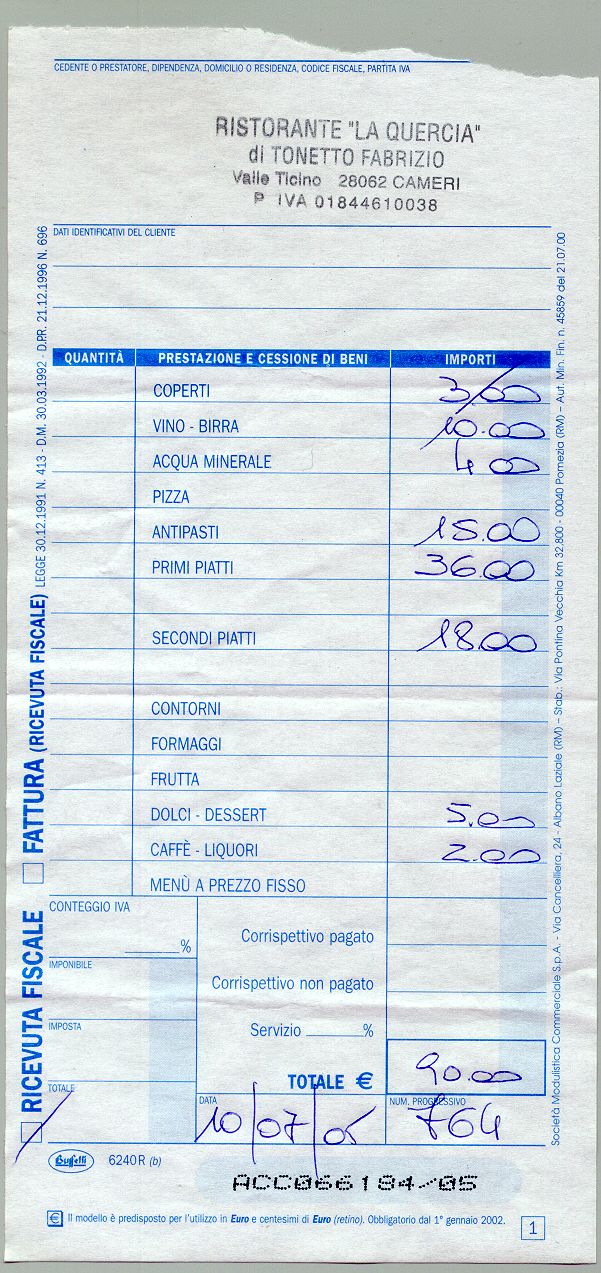 CEDENTE O PRESTATORE, DIPENDENZA, DOMICILIO O RESIDENZA, CODICE FISCALE, PARTITA IVA
RISTORANTE "LA QUERCIA"
di TONETTO FABRIZIO
Valle Ticino 28062 CAMERI
P IVA 01844610038
DATI IDENTIFICATIVI DEL CLIENTE
QUANTITÀ PRESTAZIONE E CESSIONE DI BENI IMPORTI
COPERTI 3/00
VINO - BIRRA 10.00
ACQUA MINERALE 4 00
PIZZA
ANTIPASTI 15.00
PRIMI PIATTI 36.00
SECONDI PIATTI 18.00
CONTORNI
FORMAGGI
FRUTTA
DOLCI - DESSERT 5.00
CAFFÈ - LIQUORI 2.00
MENÙ A PREZZO FISSO
CONTEGGIO IVA
%
IMPONIBILE
IMPOSTA
TOTALE
Corrispettivo pagato
Corrispettivo non pagato
Servizio %
TOTALE € 90.00
DATA 10/07/05
NUM. PROGRESSIVO 764
RICEVUTA FISCALE FATTURA (RICEVUTA FISCALE) LEGGE 30.12.1991 N. 413 - D.M. 30.03.1992 - D.P.R. 21.12.1996 N. 696
Società Modulistica Commerciale S.p.A. - Via Cancelliera, 24 - Albano Laziale (RM) – Stab.: Via Pontina Vecchia Km 32.800 - 00040 Pomezia (RM) – Aut. Min. Fin. n. 45859 del 21.07.00
Buffetti 6240 R (b)
ACC066184/05
€ Il modello è predisposto per l'utilizzo in Euro e centesimi di Euro (retino). Obbligatorio dal 1° gennaio 2002.
1